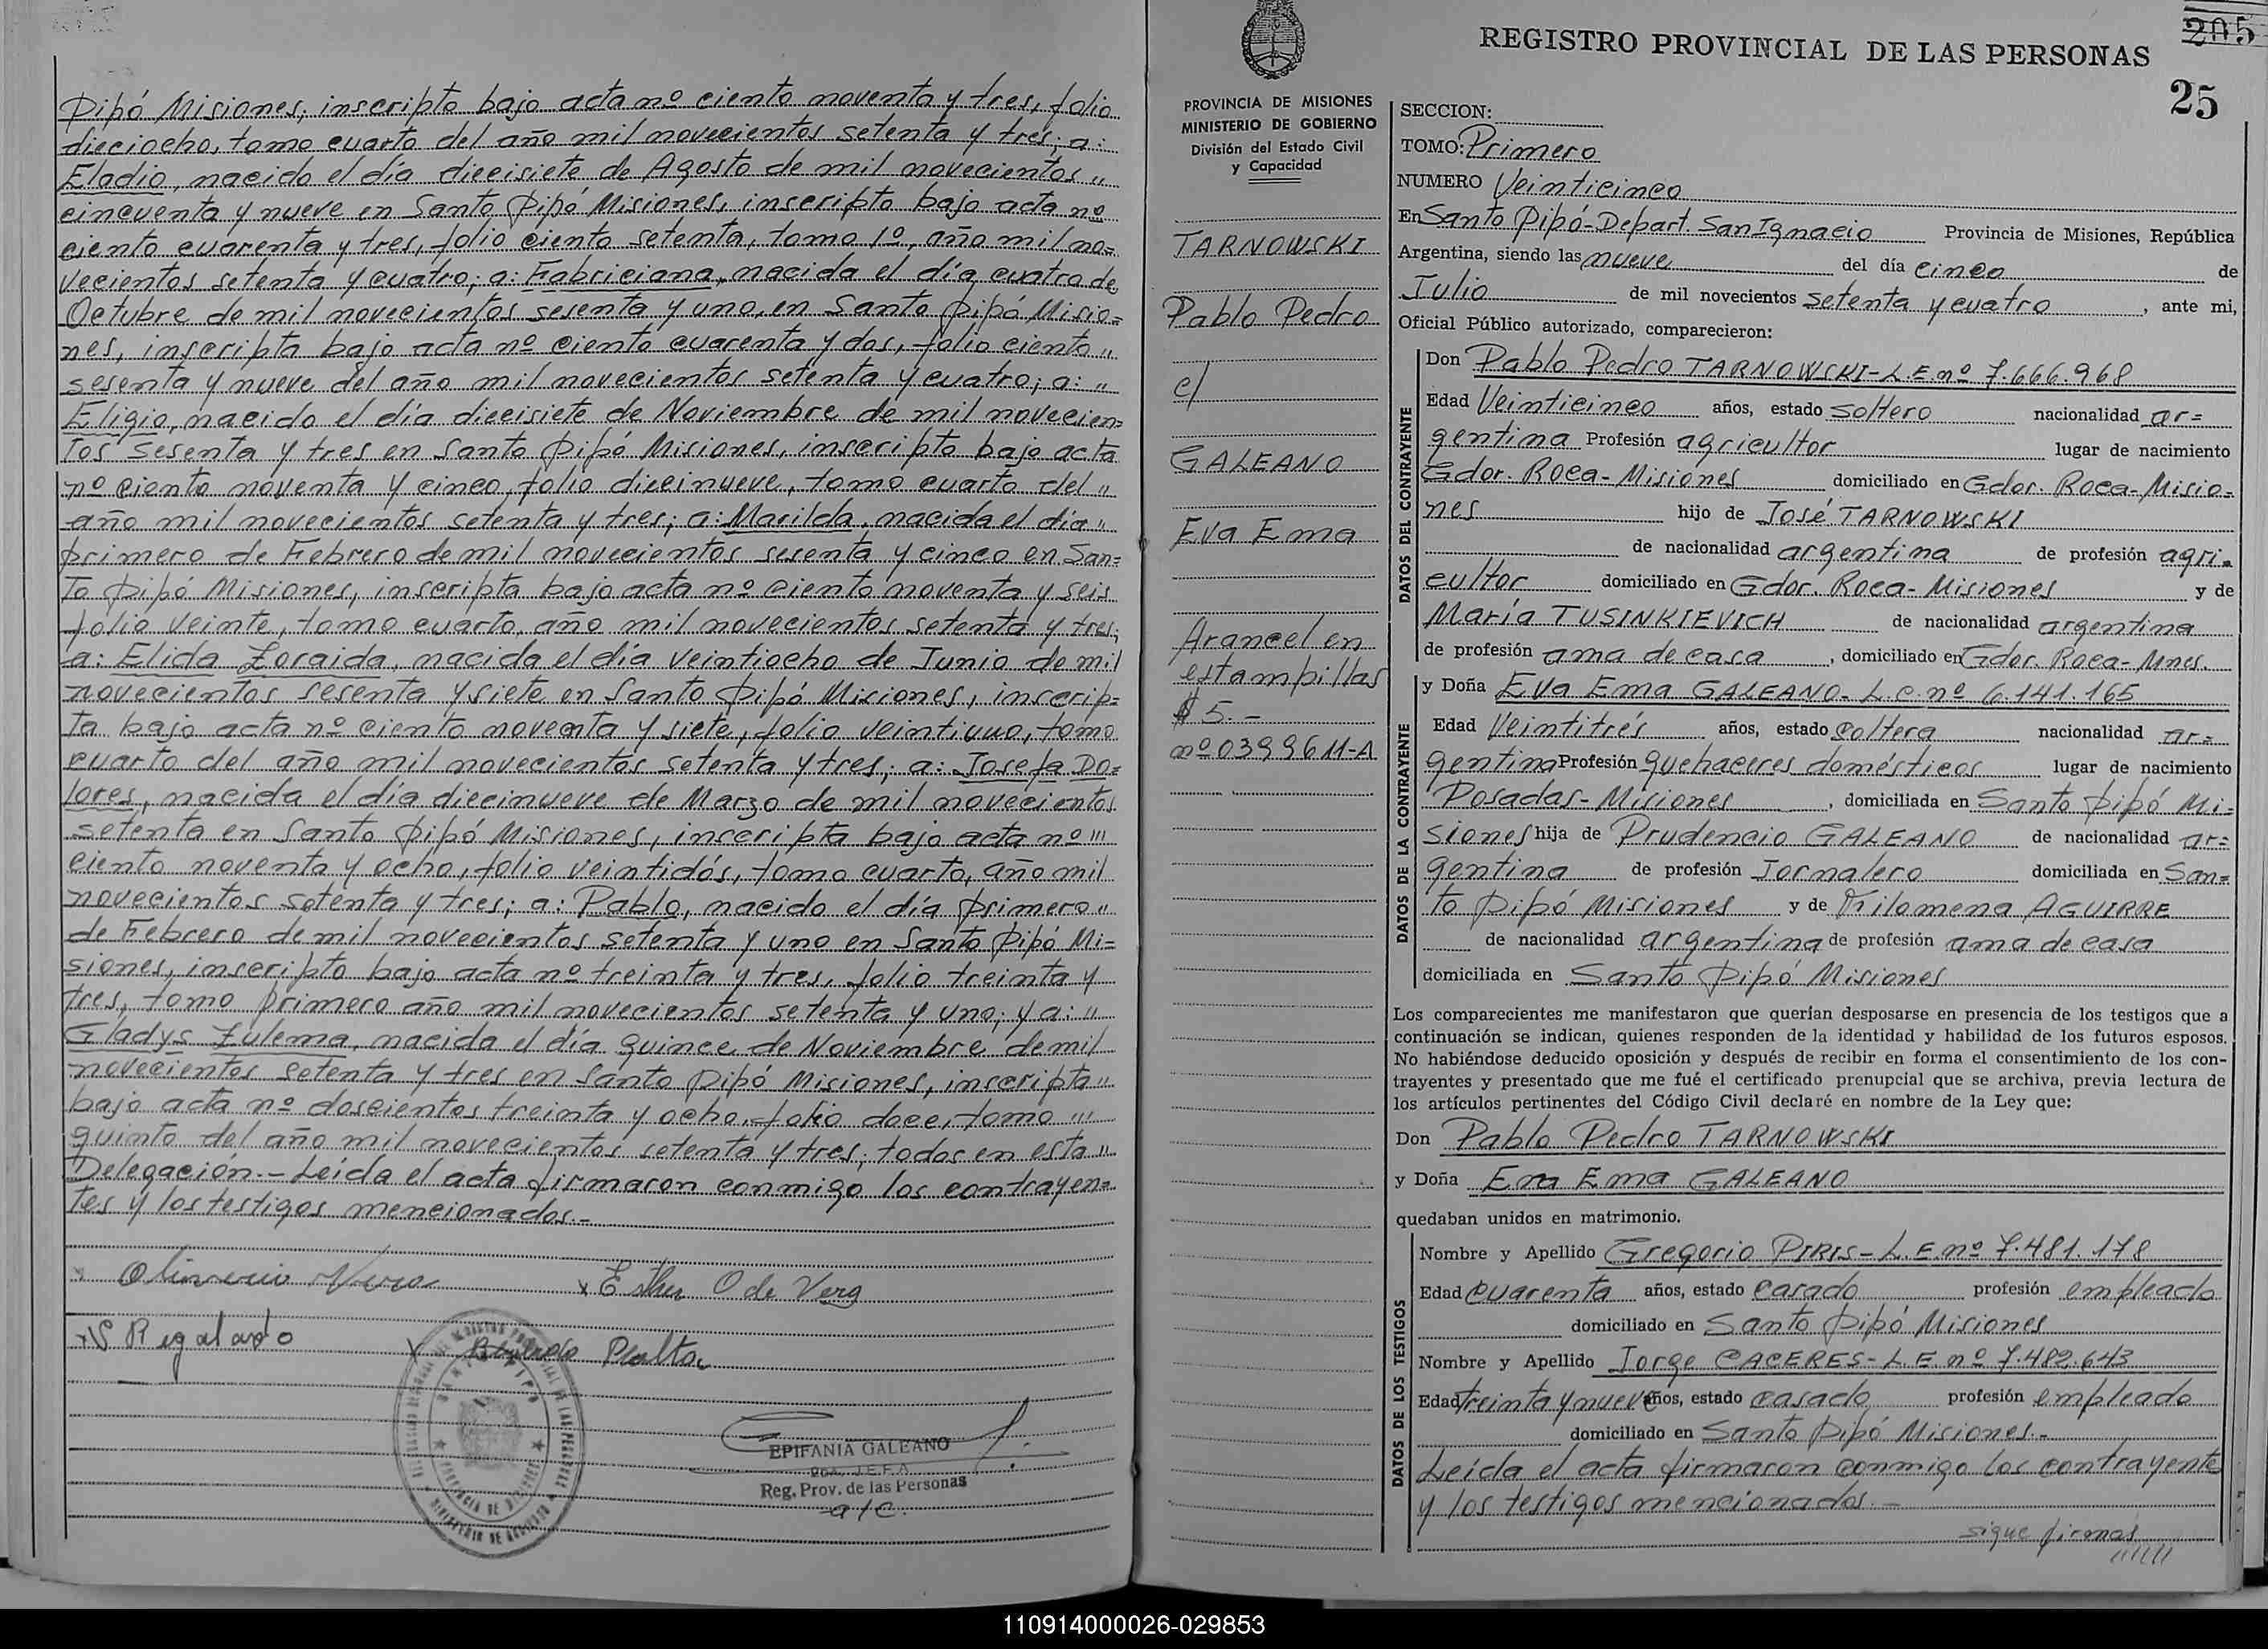 Pipó Misiones, inscripto bajo acta nº ciento noventa y tres, folio
dieciocho, tomo cuarto del año mil novecientos setenta y tres; a:
Eladio, nacido el día diecisiete de Agosto de mil novecientos "
cincuenta y nueve en Santo Pipó Misiones, inscripto bajo acta nº
ciento cuarenta y tres, folio ciento setenta, tomo 1º, año mil no=
vecientos setenta y cuatro; a: Fabriciana, nacida el día cuatro de
Octubre de mil novecientos sesenta y uno, en Santo Pipó Misio=
nes, inscripta bajo acta nº ciento cuarenta y dos, folio ciento "
sesenta y nueve del año mil novecientos setenta y cuatro; a: "
Eligio, nacido el día diecisiete de Noviembre de mil novecien=
tos sesenta y tres en Santo Pipó Misiones, inscripto bajo acta
nº ciento noventa y cinco, folio diecinueve, tomo cuarto del "
año mil novecientos setenta y tres; a: Marilda, nacida el día "
primero de Febrero de mil novecientos sesenta y cinco en San=
to Pipó Misiones, inscripta bajo acta nº ciento noventa y seis
folio veinte, tomo cuarto, año mil novecientos setenta y tres;
a: Elida Zoraida, nacida el día veintiocho de Junio de mil
novecientos sesenta y siete en Santo Pipó Misiones, inscrip=
ta bajo acta nº ciento noventa y siete, folio veintiuno, tomo
cuarto del año mil novecientos setenta y tres; a: Josefa Do=
lores, nacida el día diecinueve de Marzo de mil novecientos
setenta en Santo Pipó Misiones, inscripta bajo acta nº "'
ciento noventa y ocho, folio veintidós, tomo cuarto, año mil
novecientos setenta y tres; a: Pablo, nacido el día primero "
de Febrero de mil novecientos setenta y uno en Santo Pipó Mi=
siones, inscripto bajo acta nº treinta y tres, folio treinta y
tres, tomo primero año mil novecientos setenta y uno; y a: "
Gladys Zulema, nacida el día quince de Noviembre de mil
novecientos setenta y tres en Santo Pipó Misiones, inscripta "
bajo acta nº doscientos treinta y ocho, folio doce, tomo "'
quinto del año mil novecientos setenta y tres; todos en esta "
Delegación.- Leída el acta firmaron conmigo los contrayen=
tes y los testigos mencionados.-
x Esther O de Vera
x S Regalado
x Peralta
EPIFANIA GALEANO
JEFA
Reg. Prov. de las Personas
a/c.
REGISTRO PROVINCIAL DE LAS PERSONAS
205
25
PROVINCIA DE MISIONES
MINISTERIO DE GOBIERNO
División del Estado Civil
y Capacidad
TARNOWSKI
Pablo Pedro
c/
GALEANO
Eva Ema
Arancel en
estampillas
$ 5.-
nº 0399611-A
SECCION:
TOMO: Primero
NUMERO Veinticinco
En Santo Pipó-Depart. San Ignacio Provincia de Misiones, República
Argentina, siendo las nueve del día cinco de
Julio de mil novecientos setenta y cuatro, ante mi,
Oficial Público autorizado, comparecieron:
DATOS DEL CONTRAYENTE
Don Pablo Pedro TARNOWSKI-L.E.nº 7.666.968
Edad Veinticinco años, estado soltero nacionalidad ar=
gentina Profesión agricultor lugar de nacimiento
Gdor. Roca-Misiones domiciliado en Gdor. Roca-Misio=
nes hijo de José TARNOWSKI
de nacionalidad argentina de profesión agri=
cultor domiciliado en Gdor. Roca-Misiones y de
María TUSINKIEVICH de nacionalidad argentina
de profesión ama de casa, domiciliado en Gdor. Roca-Mnes.
DATOS DE LA CONTRAYENTE
y Doña Eva Ema GALEANO-L.C.nº 6.141.165
Edad Veintitrés años, estado soltera nacionalidad ar=
gentina Profesión quehaceres domésticos lugar de nacimiento
Posadas-Misiones, domiciliada en Santo Pipó Mi=
siones hija de Prudencio GALEANO de nacionalidad ar=
gentina de profesión Jornalero domiciliada en San=
to Pipó Misiones y de Filomena AGUIRRE
de nacionalidad argentina de profesión ama de casa
domiciliada en Santo Pipó Misiones
Los comparecientes me manifestaron que querían desposarse en presencia de los testigos que a
continuación se indican, quienes responden de la identidad y habilidad de los futuros esposos.
No habiéndose deducido oposición y después de recibir en forma el consentimiento de los con-
trayentes y presentado que me fué el certificado prenupcial que se archiva, previa lectura de
los artículos pertinentes del Código Civil declaré en nombre de la Ley que:
Don Pablo Pedro TARNOWSKI
y Doña Eva Ema GALEANO
quedaban unidos en matrimonio.
DATOS DE LOS TESTIGOS
Nombre y Apellido Gregorio PIRIS-L.E.nº 7.481.178
Edad cuarenta años, estado casado profesión empleado
domiciliado en Santo Pipó Misiones
Nombre y Apellido Jorge CACERES-L.E.nº 7.482.643
Edad treinta y nueve años, estado casado profesión empleado
domiciliado en Santo Pipó Misiones.-
Leída el acta firmaron conmigo los contrayente
y los testigos mencionados.-
sigue firmas
110914000026-029853